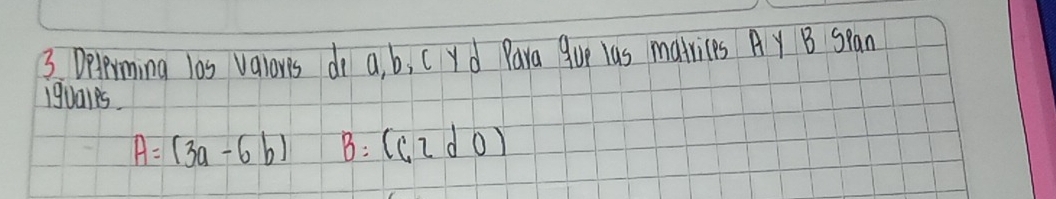 3. Determina los valores de a, b, c y d Para que las matrices A y B sean
iguales.
A = (3a - 6 b) B = (c, 2 d 0)